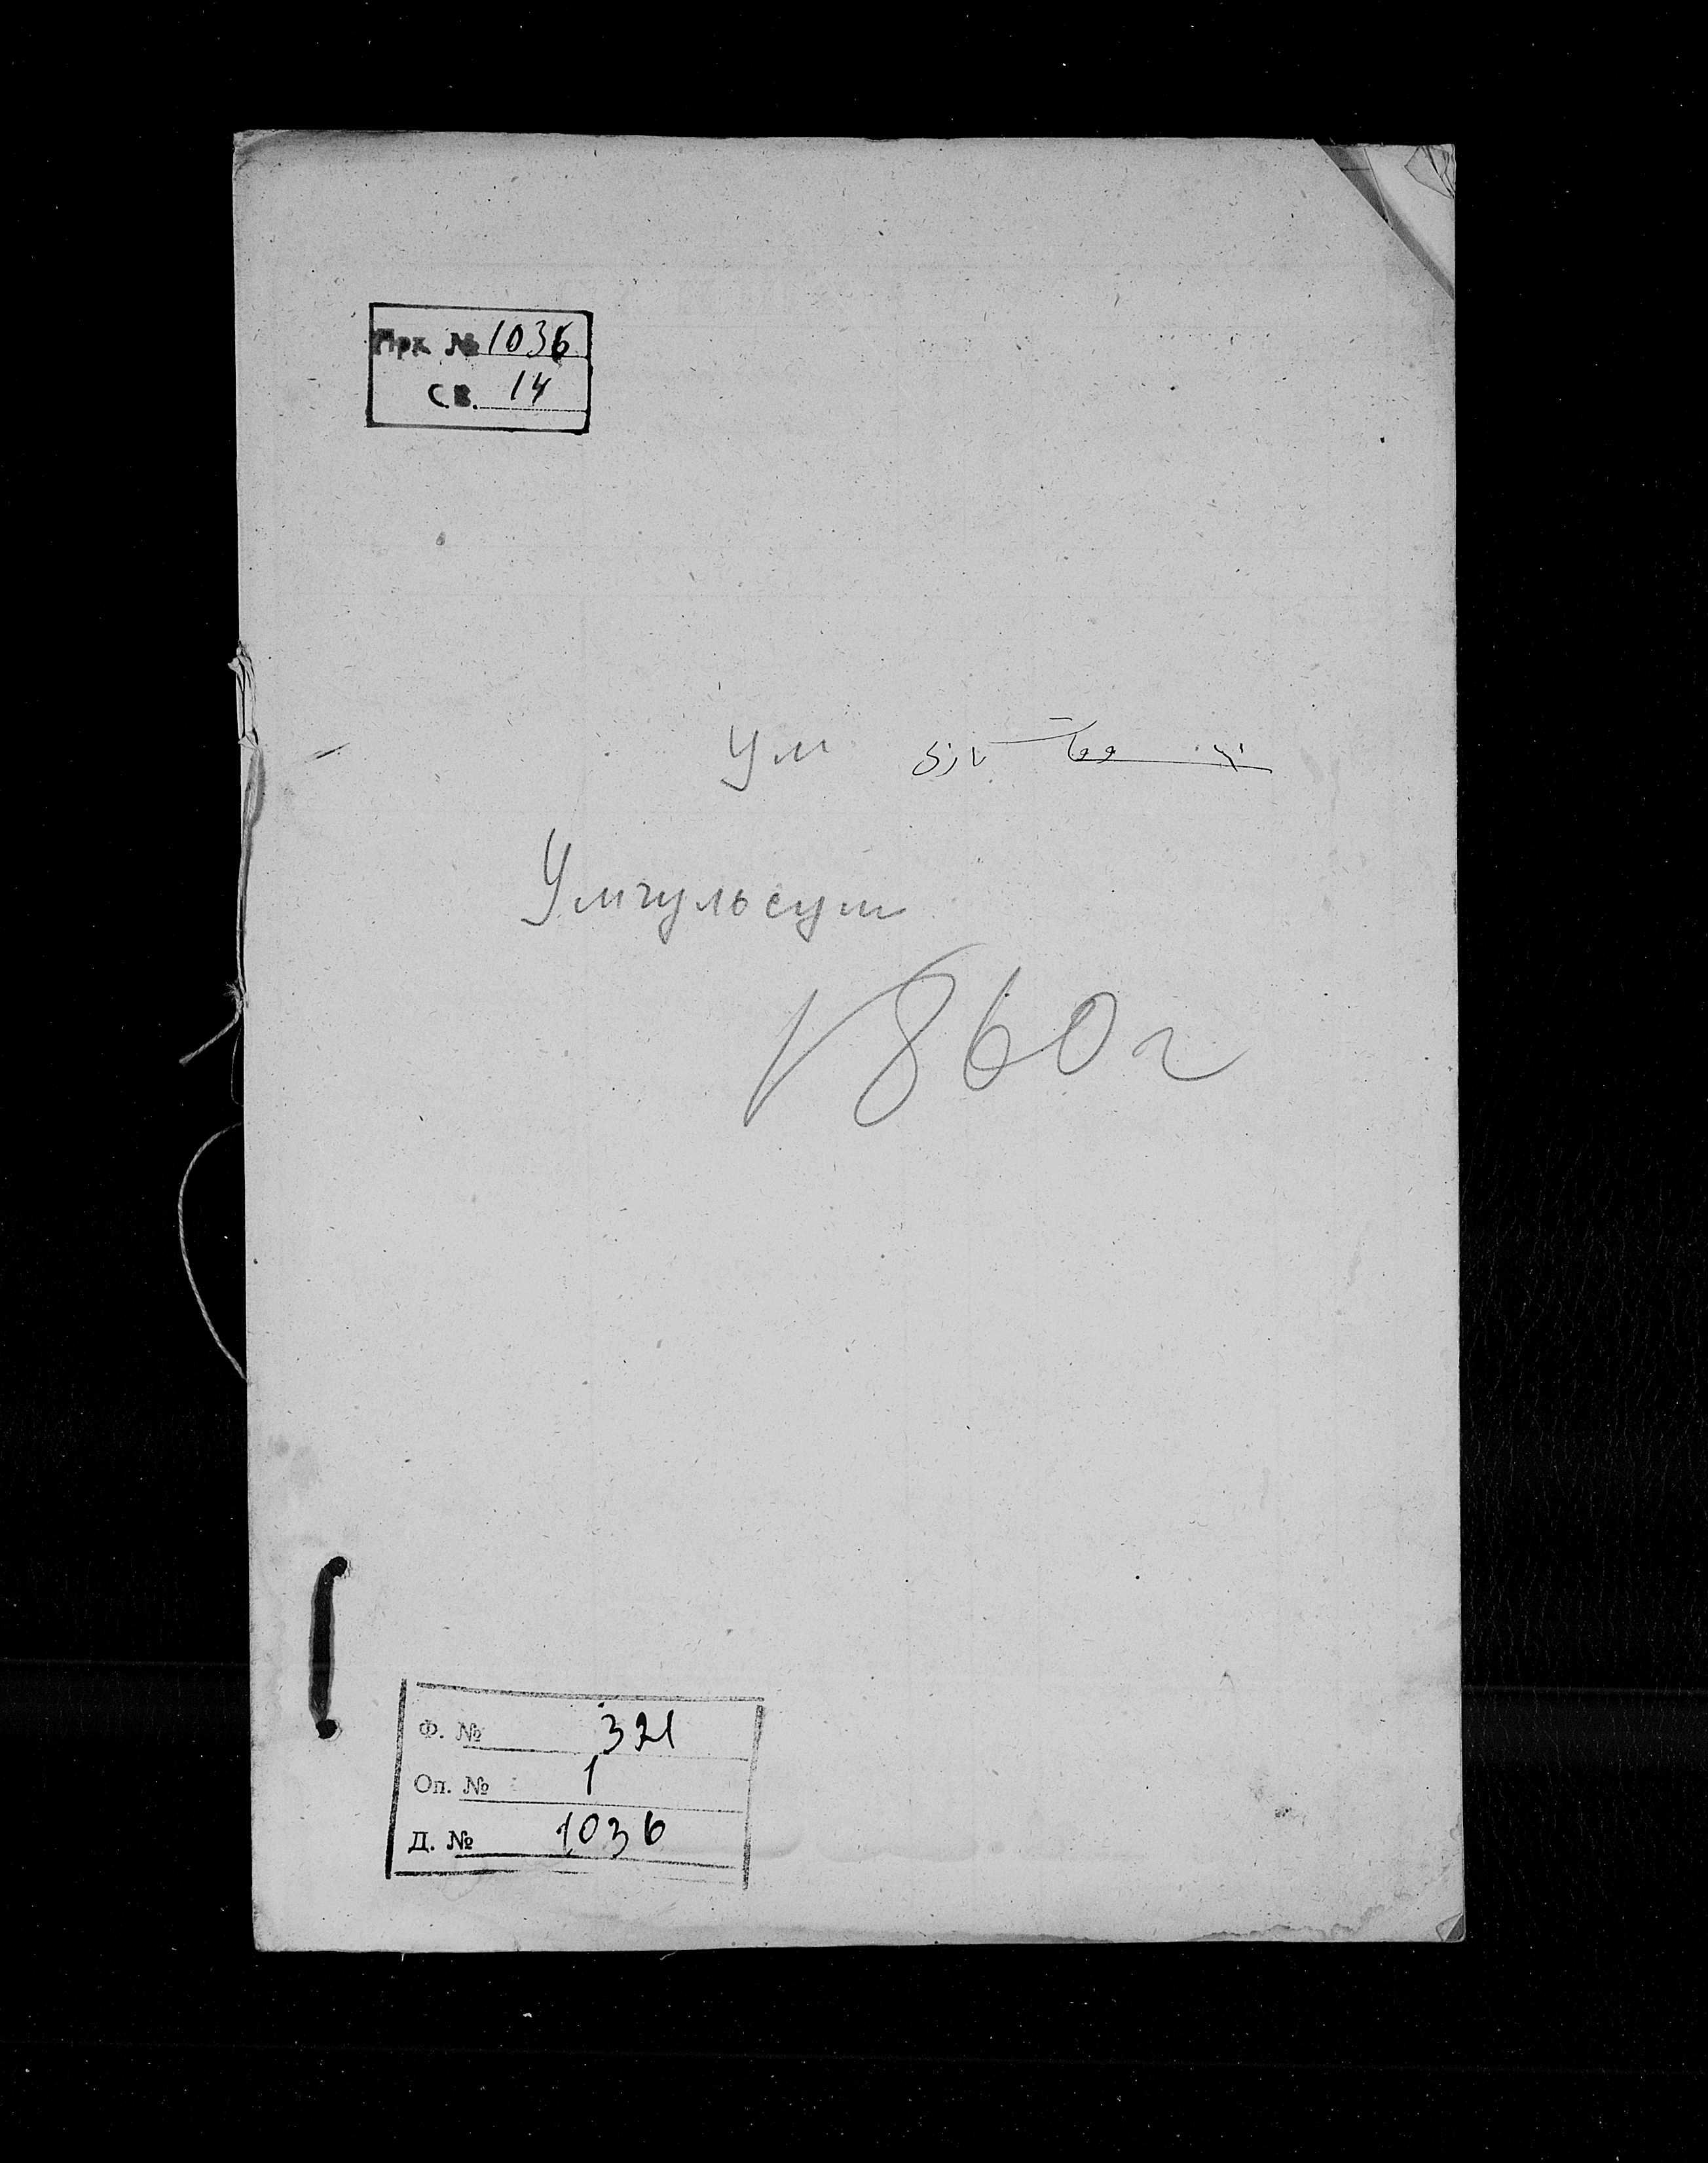 Арх. № 1036
св. 14
Ум
Умгульсум
1860 г
Ф. № 321
Оп. № 1
Д. № 1036